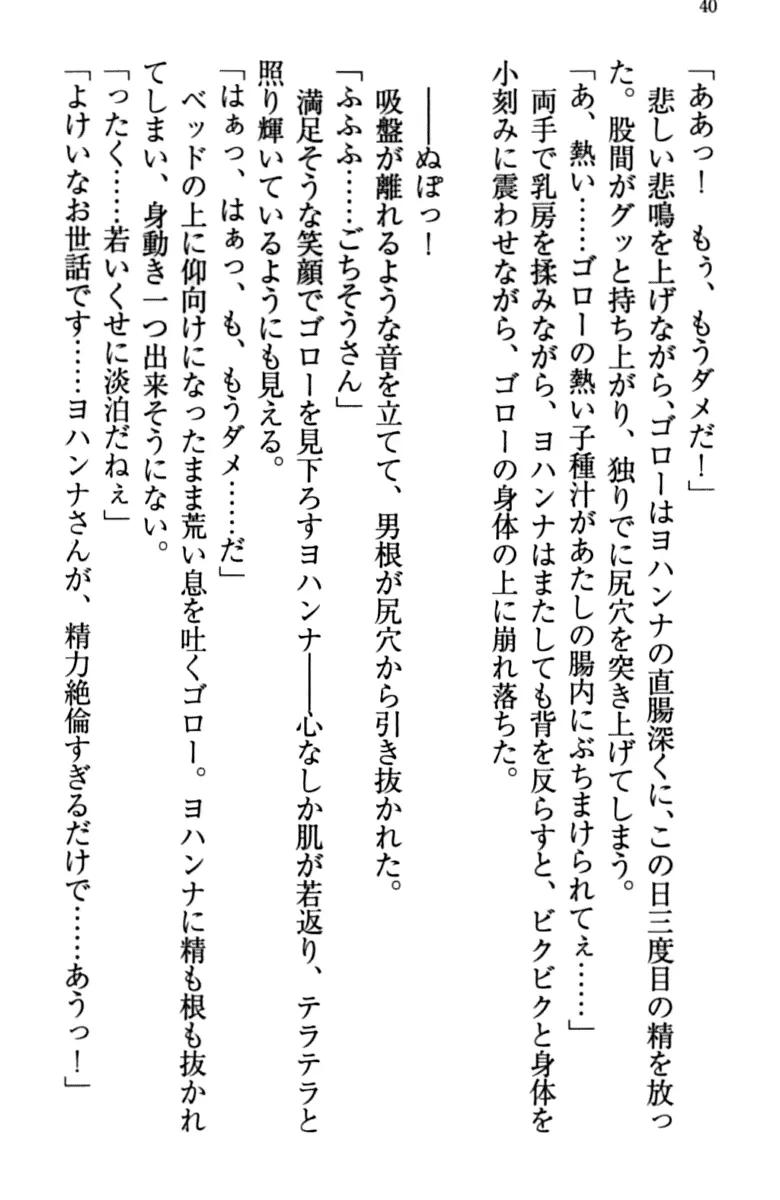 40
「ああっ！　もぅ、もうダメだ！」
　悲しい悲鳴を上げながら、ゴローはヨハンナの直腸深くに、この日三度目の精を放っ
た。股間がグッと持ち上がり、独りでに尻穴を突き上げてしまう。
「あ、熱い……ゴローの熱い子種汁があたしの腸内にぶちまけられてぇ……」
　両手で乳房を揉みながら、ヨハンナはまたしても背を反らすと、ビクビクと身体を
小刻みに震わせながら、ゴローの身体の上に崩れ落ちた。
　――ぬぽっ！
　吸盤が離れるような音を立てて、男根が尻穴から引き抜かれた。
「ふふふ……ごちそうさん」
　満足そうな笑顔でゴローを見下ろすヨハンナ――心なしか肌が若返り、テラテラと
照り輝いているようにも見える。
「はぁっ、はぁっ、も、もうダメ……だ」
　ベッドの上に仰向けになったまま荒い息を吐くゴロー。ヨハンナに精も根も抜かれ
てしまい、身動き一つ出来そうにない。
「ったく……若いくせに淡泊だねぇ」
「よけいなお世話です……ヨハンナさんが、精力絶倫すぎるだけで……あうっ！」